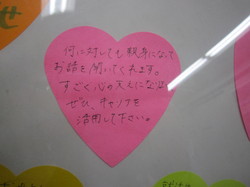 せ
何に対しても親身になって
お話を聞いてくれます。
すごく心の支えになるので
ぜひ、キャリアを
活用して下さい。